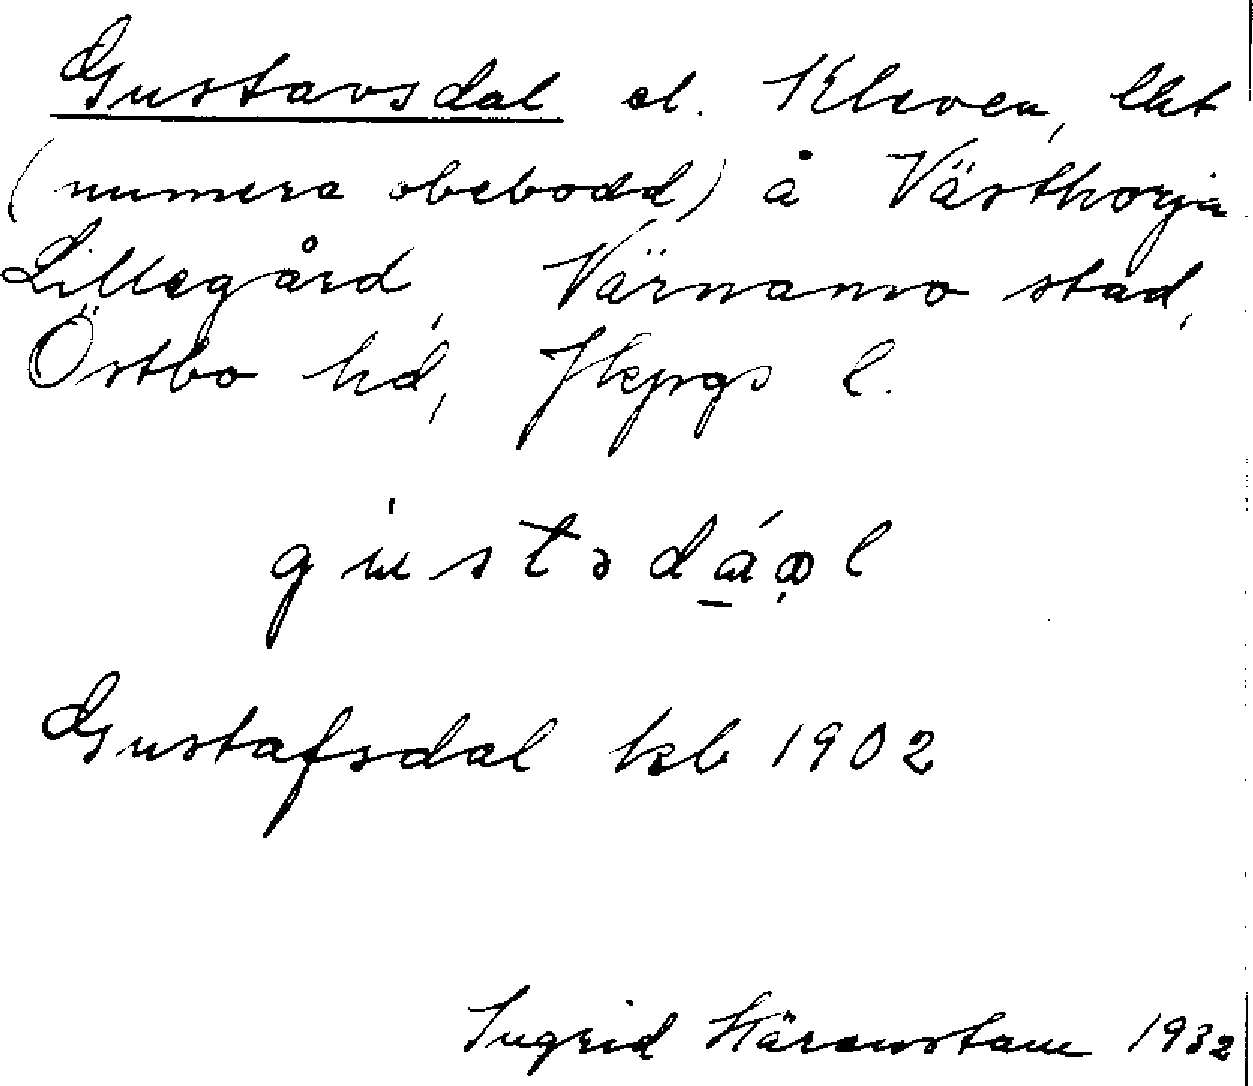 Gustavsdal el. Kleven, lht
(numera obebodd) å Västhorja
Lillegård, Värnamo stad,
Östbo hd, Jkpgs l.
Gustafsdal kb 1902
Ingrid Härenstam 1932